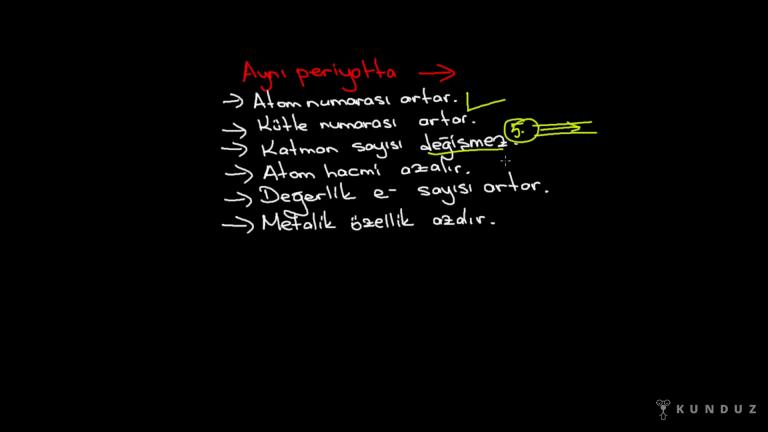 Aynı periyotta →
→ Atom numarası artar. ✓
→ Kütle numarası artar.
→ Katman sayısı değişmez. 5. →
→ Atom hacmi azalır.
→ Değerlik e- sayısı artar.
→ Metalik özellik azalır.
KUNDUZ